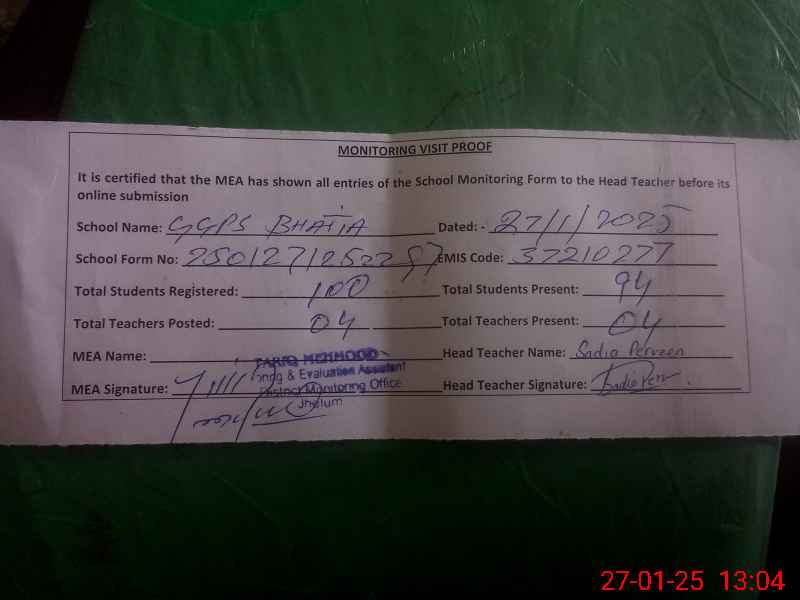 MONITORING VISIT PROOF
It is certified that the MEA has shown all entries of the School Monitoring Form to the Head Teacher before its
online submission
School Name: GGPS BHATIA Dated: - 27/1/2025
School Form No: EMIS Code: 37210277
Total Students Registered: 100 Total Students Present: 94
Total Teachers Posted: 04 Total Teachers Present: 04
MEA Name: TARIQ MEHMOOD Head Teacher Name: Sadia Perveen
& Evaluation Assistant
District Monitoring Office
MEA Signature: Head Teacher Signature: Sadia Perv
Jhelum
27-01-25 13:04